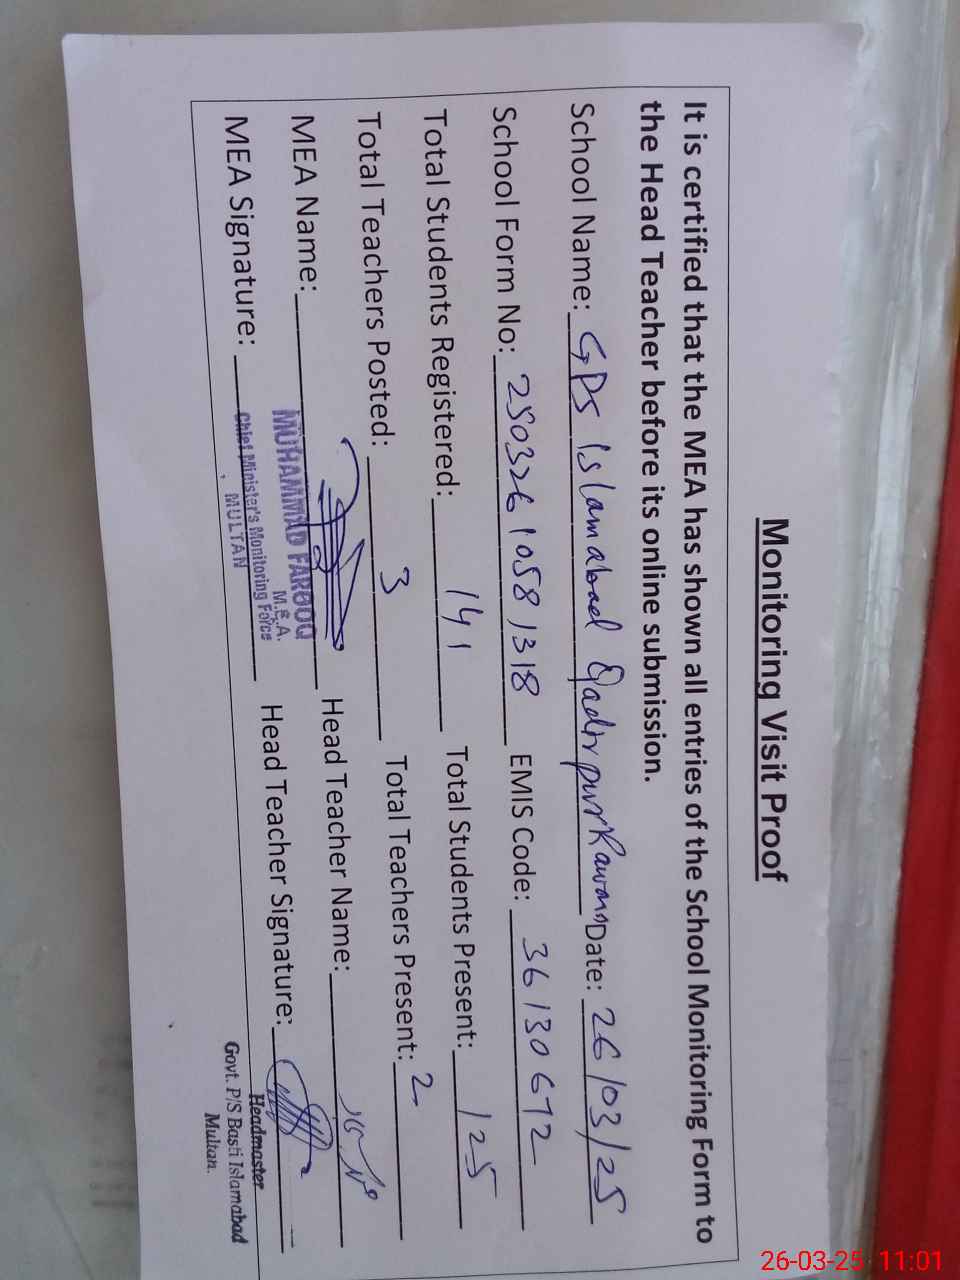 Monitoring Visit Proof
It is certified that the MEA has shown all entries of the School Monitoring Form to
the Head Teacher before its online submission.
School Name: GPS Islamabad Qadirpur Rawan Date: 26/03/25
School Form No: 25032610581318 EMIS Code: 36130672
Total Students Registered: 141 Total Students Present: 125
Total Teachers Posted: 3 Total Teachers Present: 2
MEA Name: Head Teacher Name:
MUHAMMAD FAROOQ
M.E.A.
MEA Signature: Head Teacher Signature:
Chief Minister's Monitoring Force
MULTAN
Headmaster
Govt. P/S Basti Islamabad
Multan.
26-03-25 11:01